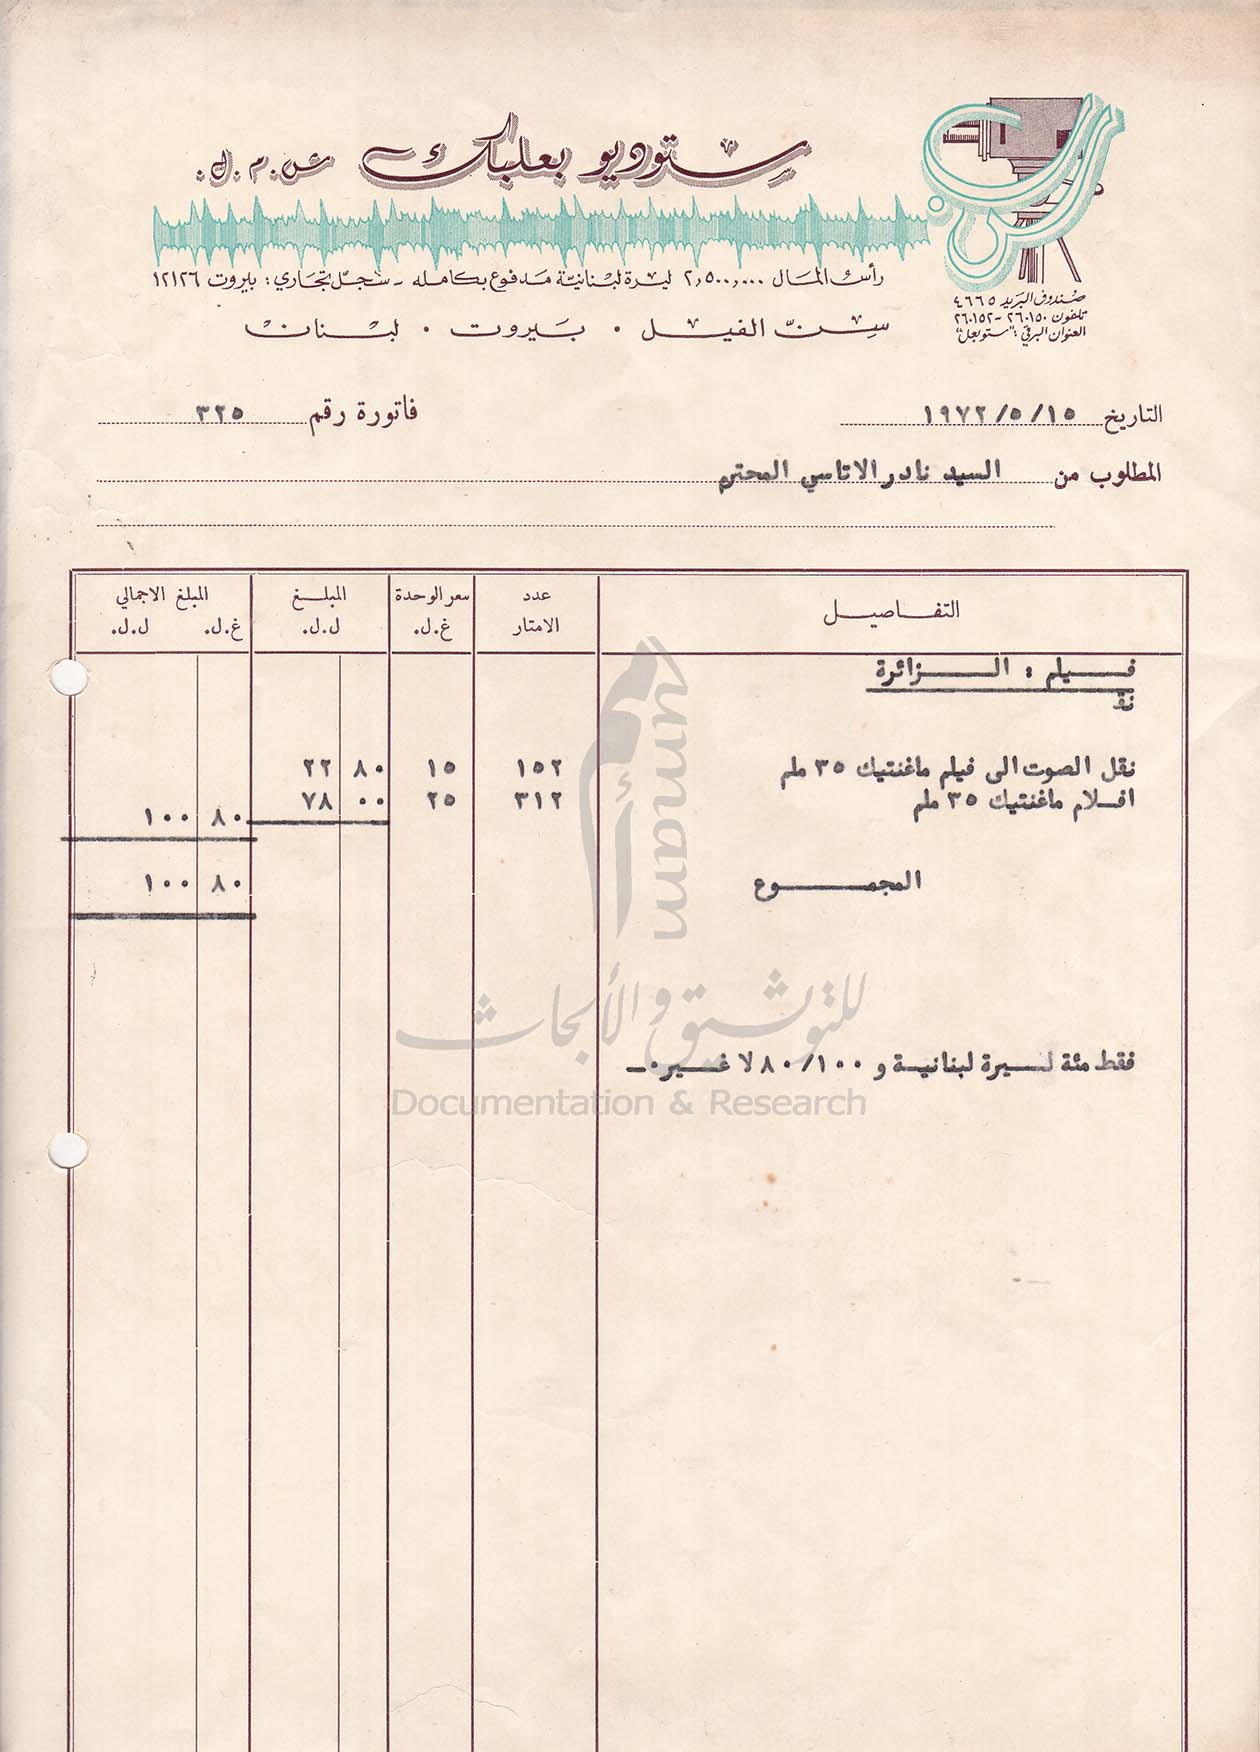 ستوديو بعلبك ش.م.ل.
رأس المال ٢,٥٠٠,٠٠٠ ليرة لبنانيّة مدفوع بكامله - سجلّ تجاري: بيروت ١٢١٢٦
سنّ الفيل • بيروت • لبنان
صندوق البريد ٤٦٦٥
تلفون ٢٦٠١٥٠ - ٢٦٠١٥٢
العنوان البرقي: "ستوبعل"
التاريخ ١٩٧٢/٥/١٥ فاتورة رقم ٣٢٥
المطلوب من السيد نادر الاتاسي المحترم
التفاصيل عدد الامتار سعر الوحدة غ.ل. المبلغ ل.ل. المبلغ الاجمالي غ.ل. ل.ل.
فيلم : الزائرة
نق
نقل الصوت الى فيلم ماغنتيك ٣٥ ملم ١٥٢ ١٥ ٨٠ ٢٢
افلام ماغنتيك ٣٥ ملم ٣١٢ ٢٥ ٠٠ ٧٨ ٨٠ ١٠٠
المجموع ٨٠ ١٠٠
فقط مئة ليرة لبنانية و ٨٠/١٠٠ لا غير ٠-
أمم
umam
للتوثيق و الأبحاث
Documentation & Research